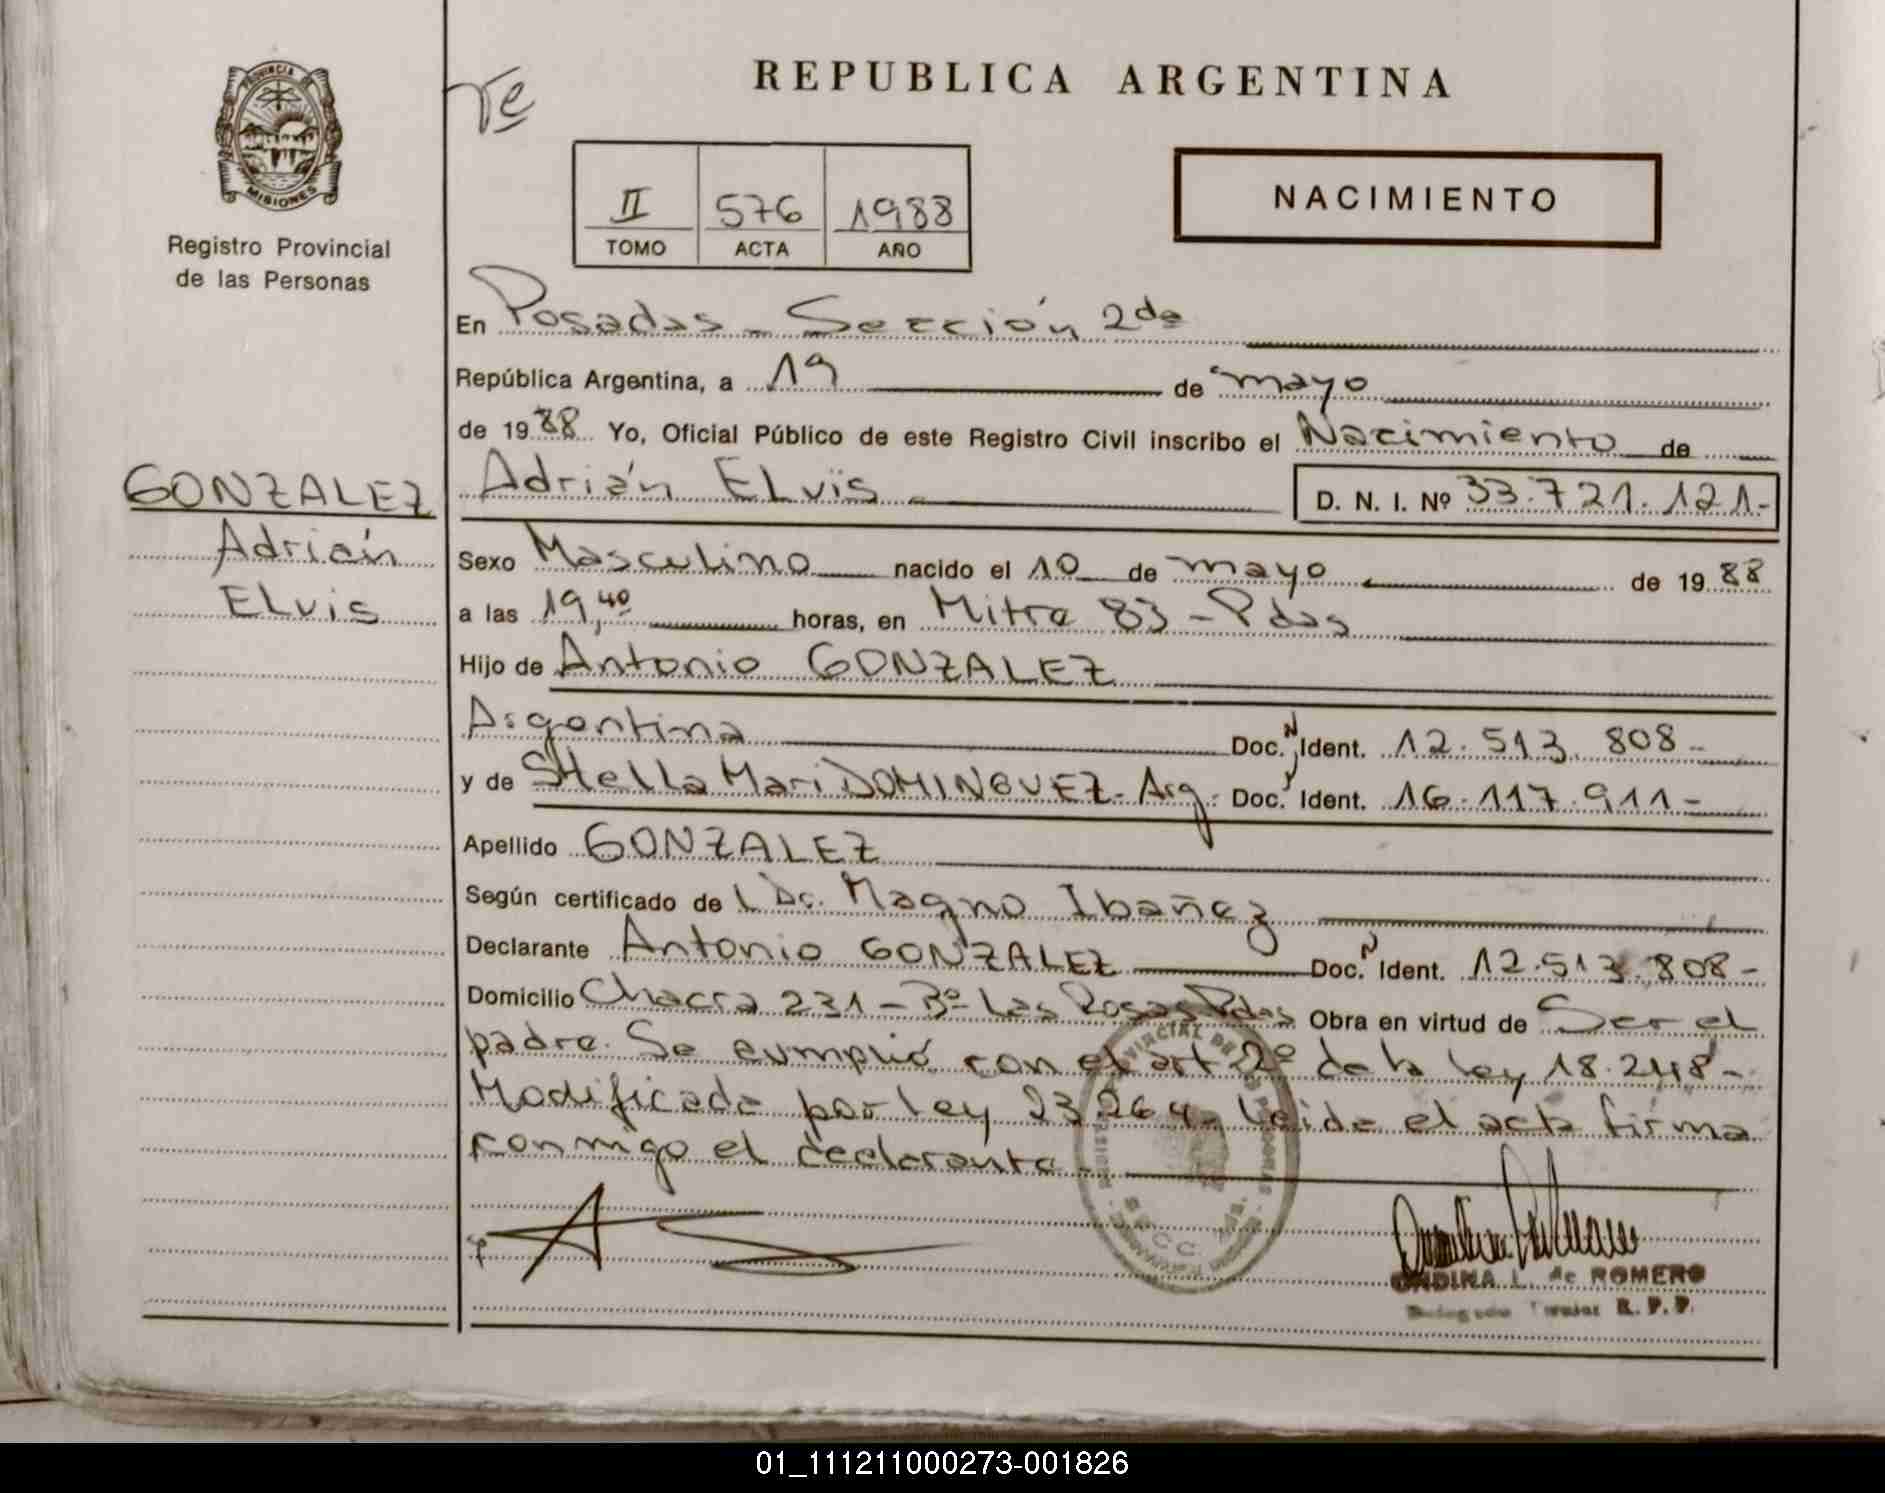 PROVINCIA
MISIONES
Registro Provincial
de las Personas
GONZALEZ
Adrián
ELvis
Te
REPUBLICA ARGENTINA
II 576 1988
TOMO ACTA AÑO
NACIMIENTO
En Posadas - Sección 2da
República Argentina, a 19 de mayo
de 1988 Yo, Oficial Público de este Registro Civil inscribo el Nacimiento de
Adrián ELvis D. N. I. Nº 33.721.121.-
Sexo Masculino nacido el 10 de mayo de 1988
a las 19,40 horas, en Mitre 83 - Pdas
Hijo de Antonio GONZALEZ
Argentina Doc. N Ident. 12.513.808-
y de Stella Mari DOMINGUEZ - Arg. Doc. Ident. 16.117.911-
Apellido GONZALEZ
Según certificado de Magno Ibañez
Declarante Antonio GONZALEZ Doc. N Ident. 12.513.808-
Domicilio Chacra 231 - Bº Las Rosas Pdas Obra en virtud de Ser el
padre. Se cumplió con el art 2º de la ley 18.248-
Modificada por ley 23.264- Leida el acta firma
conmigo el declarante-
ONDINA L. de ROMERO
R. P. P.
01_111211000273-001826